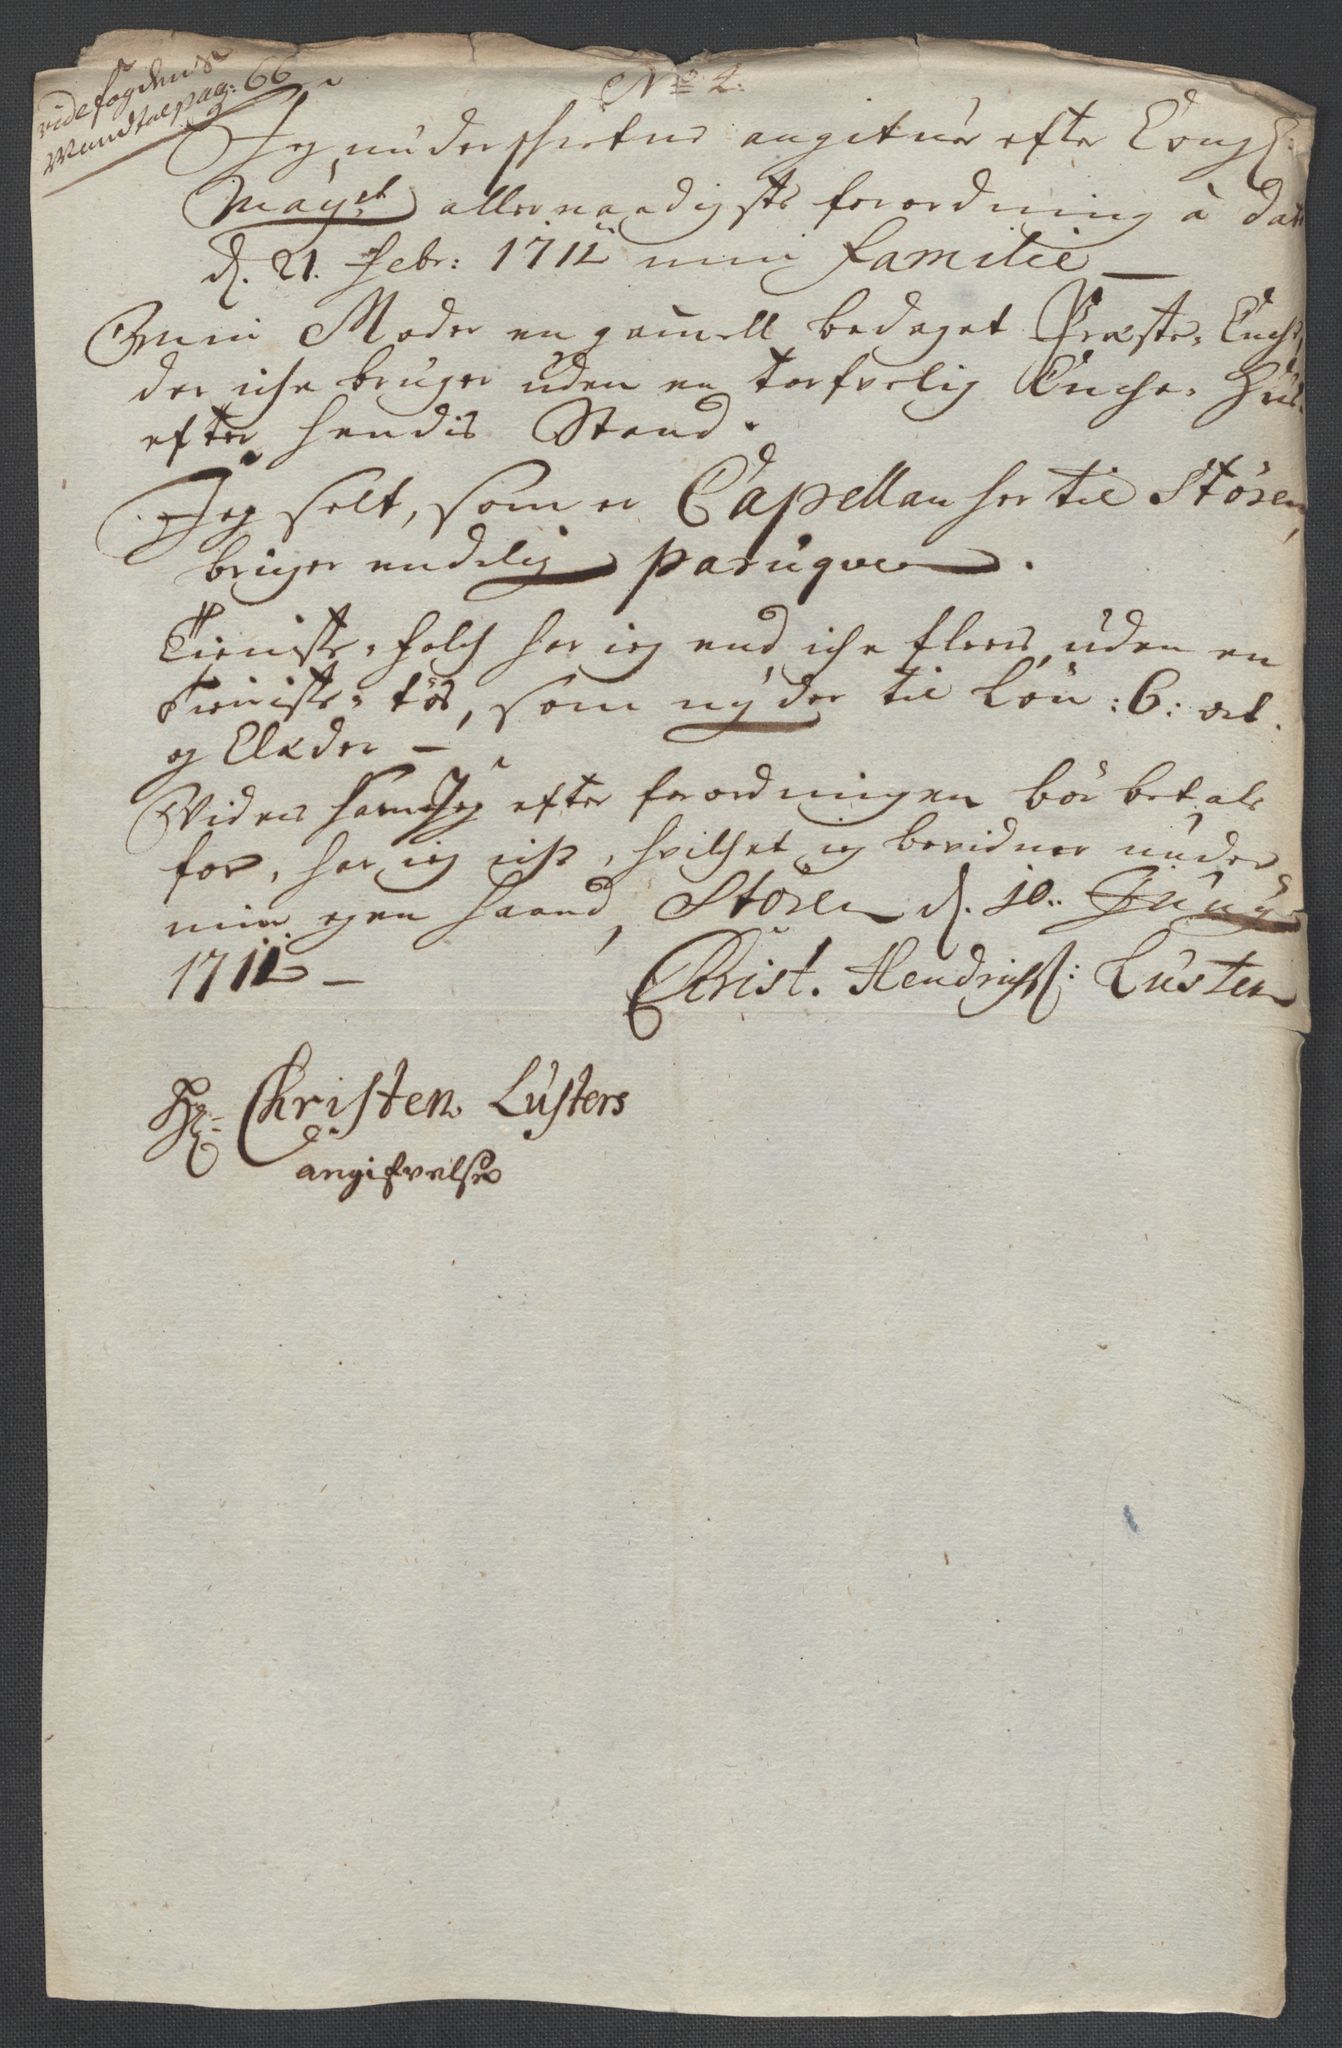 vide fogdens
Mandtal pag: 66
No 2:
Jeg underschrefne angifuer efter Kongl:
Mayst allernaadigste forordning à dato
d. 21. Febr: 1711 min familie
Min Moder en gamell bedaget Præste-Enche,
der iche bruger uden en torfvelig Enche-Hus
efter hendis Stand.
Jeg selt, som er Capellan her til Stören,
bruger endelig paruqven.
Tieniste-folch har ieg end iche fleere, uden en
Tieniste-tøs, som nyder til Løn :6: ort.
og Klæder –
Videre som Jeg efter forordningen bør betale
for, har ieg icke, hvilchet ieg bevidner under
min egen haand, Stören d. 10. Junij
1711 –
Christ. Hendrichs: Luster
Hr. Christen Lusters
angifvelse